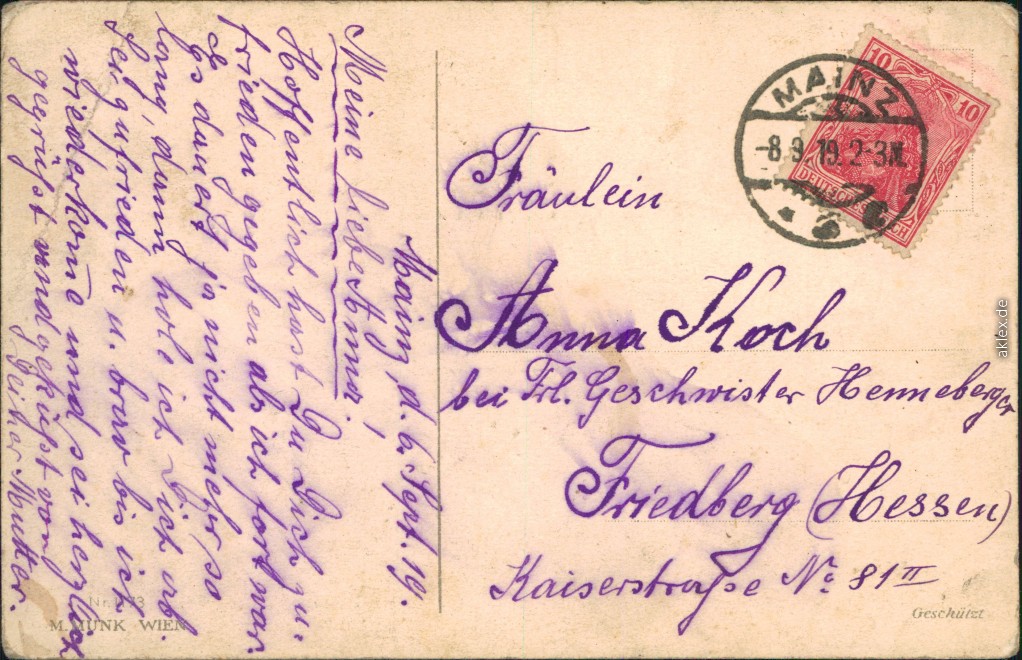 Mainz, d. 6. Sept. 19.
Meine liebe Anna!
Hoffentlich hast Du Dich zu-
frieden gegeben als ich fort war.
Es dauert ja nicht mehr so
lang, dann hole ich Dich ab.
Sei zufrieden u. brav bis ich
wiederkome und sei herzlich
gegrüßt und geküßt von
Deiner Mutter.
Fräulein
Anna Koch
bei Frl. Geschwister Henneberger
Friedberg (Hessen)
Kaiserstraße No 81 II
MAINZ
-8.9.19.2-3N.
10
10
DEUTSCHES REICH
M. MUNK WIEN
Geschützt
aklex.de